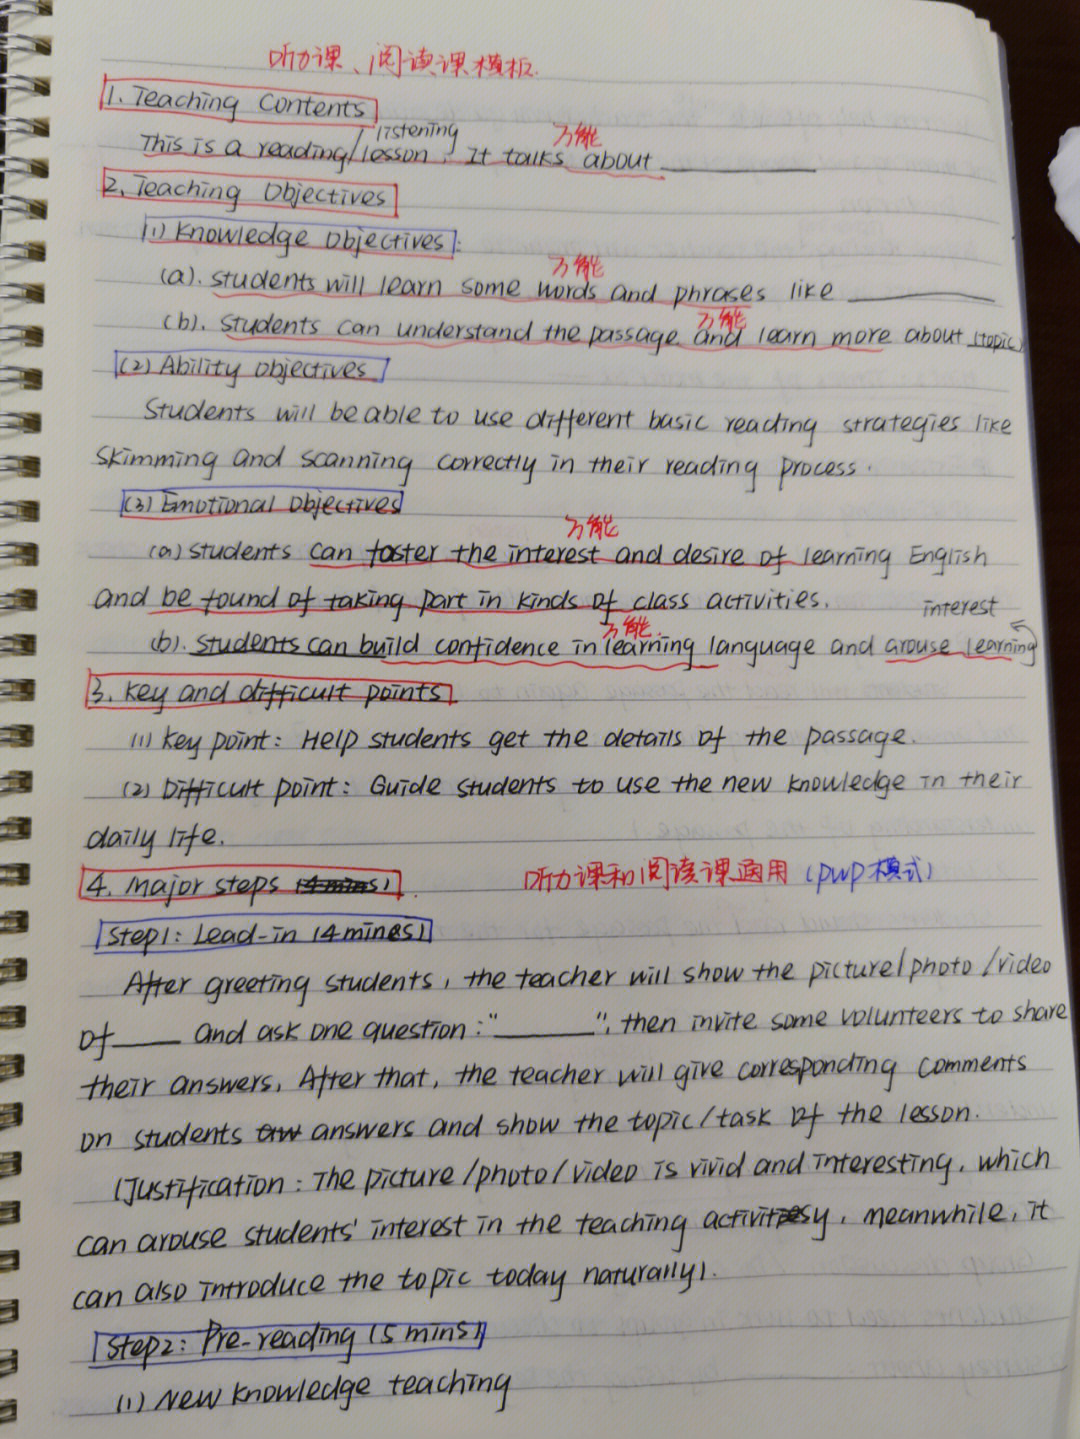 听力课、阅读课模板.
1. Teaching Contents
listening 万能
This is a reading/lesson. It talks about ________
2. Teaching Objectives
(1) Knowledge Objectives:
万能
(a). students will learn some words and phrases like ________
万能
(b). students can understand the passage and learn more about (topic)
(2) Ability Objectives
Students will be able to use different basic reading strategies like
skimming and scanning correctly in their reading process.
(3) Emotional Objectives
万能
(a) students can foster the interest and desire of learning English
and be found of taking part in kinds of class activities. interest
万能.
(b). students can build confidence in learning language and arouse learning
3. Key and difficult points
(1) Key point: Help students get the details of the passage.
(2) Difficult point: Guide students to use the new knowledge in their
daily life.
4. Major steps (4 mins). 听力课和阅读课通用 (PWP模式)
Step1: Lead-in (4 mines)
After greeting students, the teacher will show the picture/photo/video
of ____ and ask one question: "________", then invite some volunteers to share
their answers. After that, the teacher will give corresponding comments
on students answers and show the topic/task of the lesson.
(Justification: The picture/photo/video is vivid and interesting, which
can arouse students' interest in the teaching activity, meanwhile, it
can also introduce the topic today naturally).
Step2: Pre-reading (5 mins)
(1) New knowledge teaching